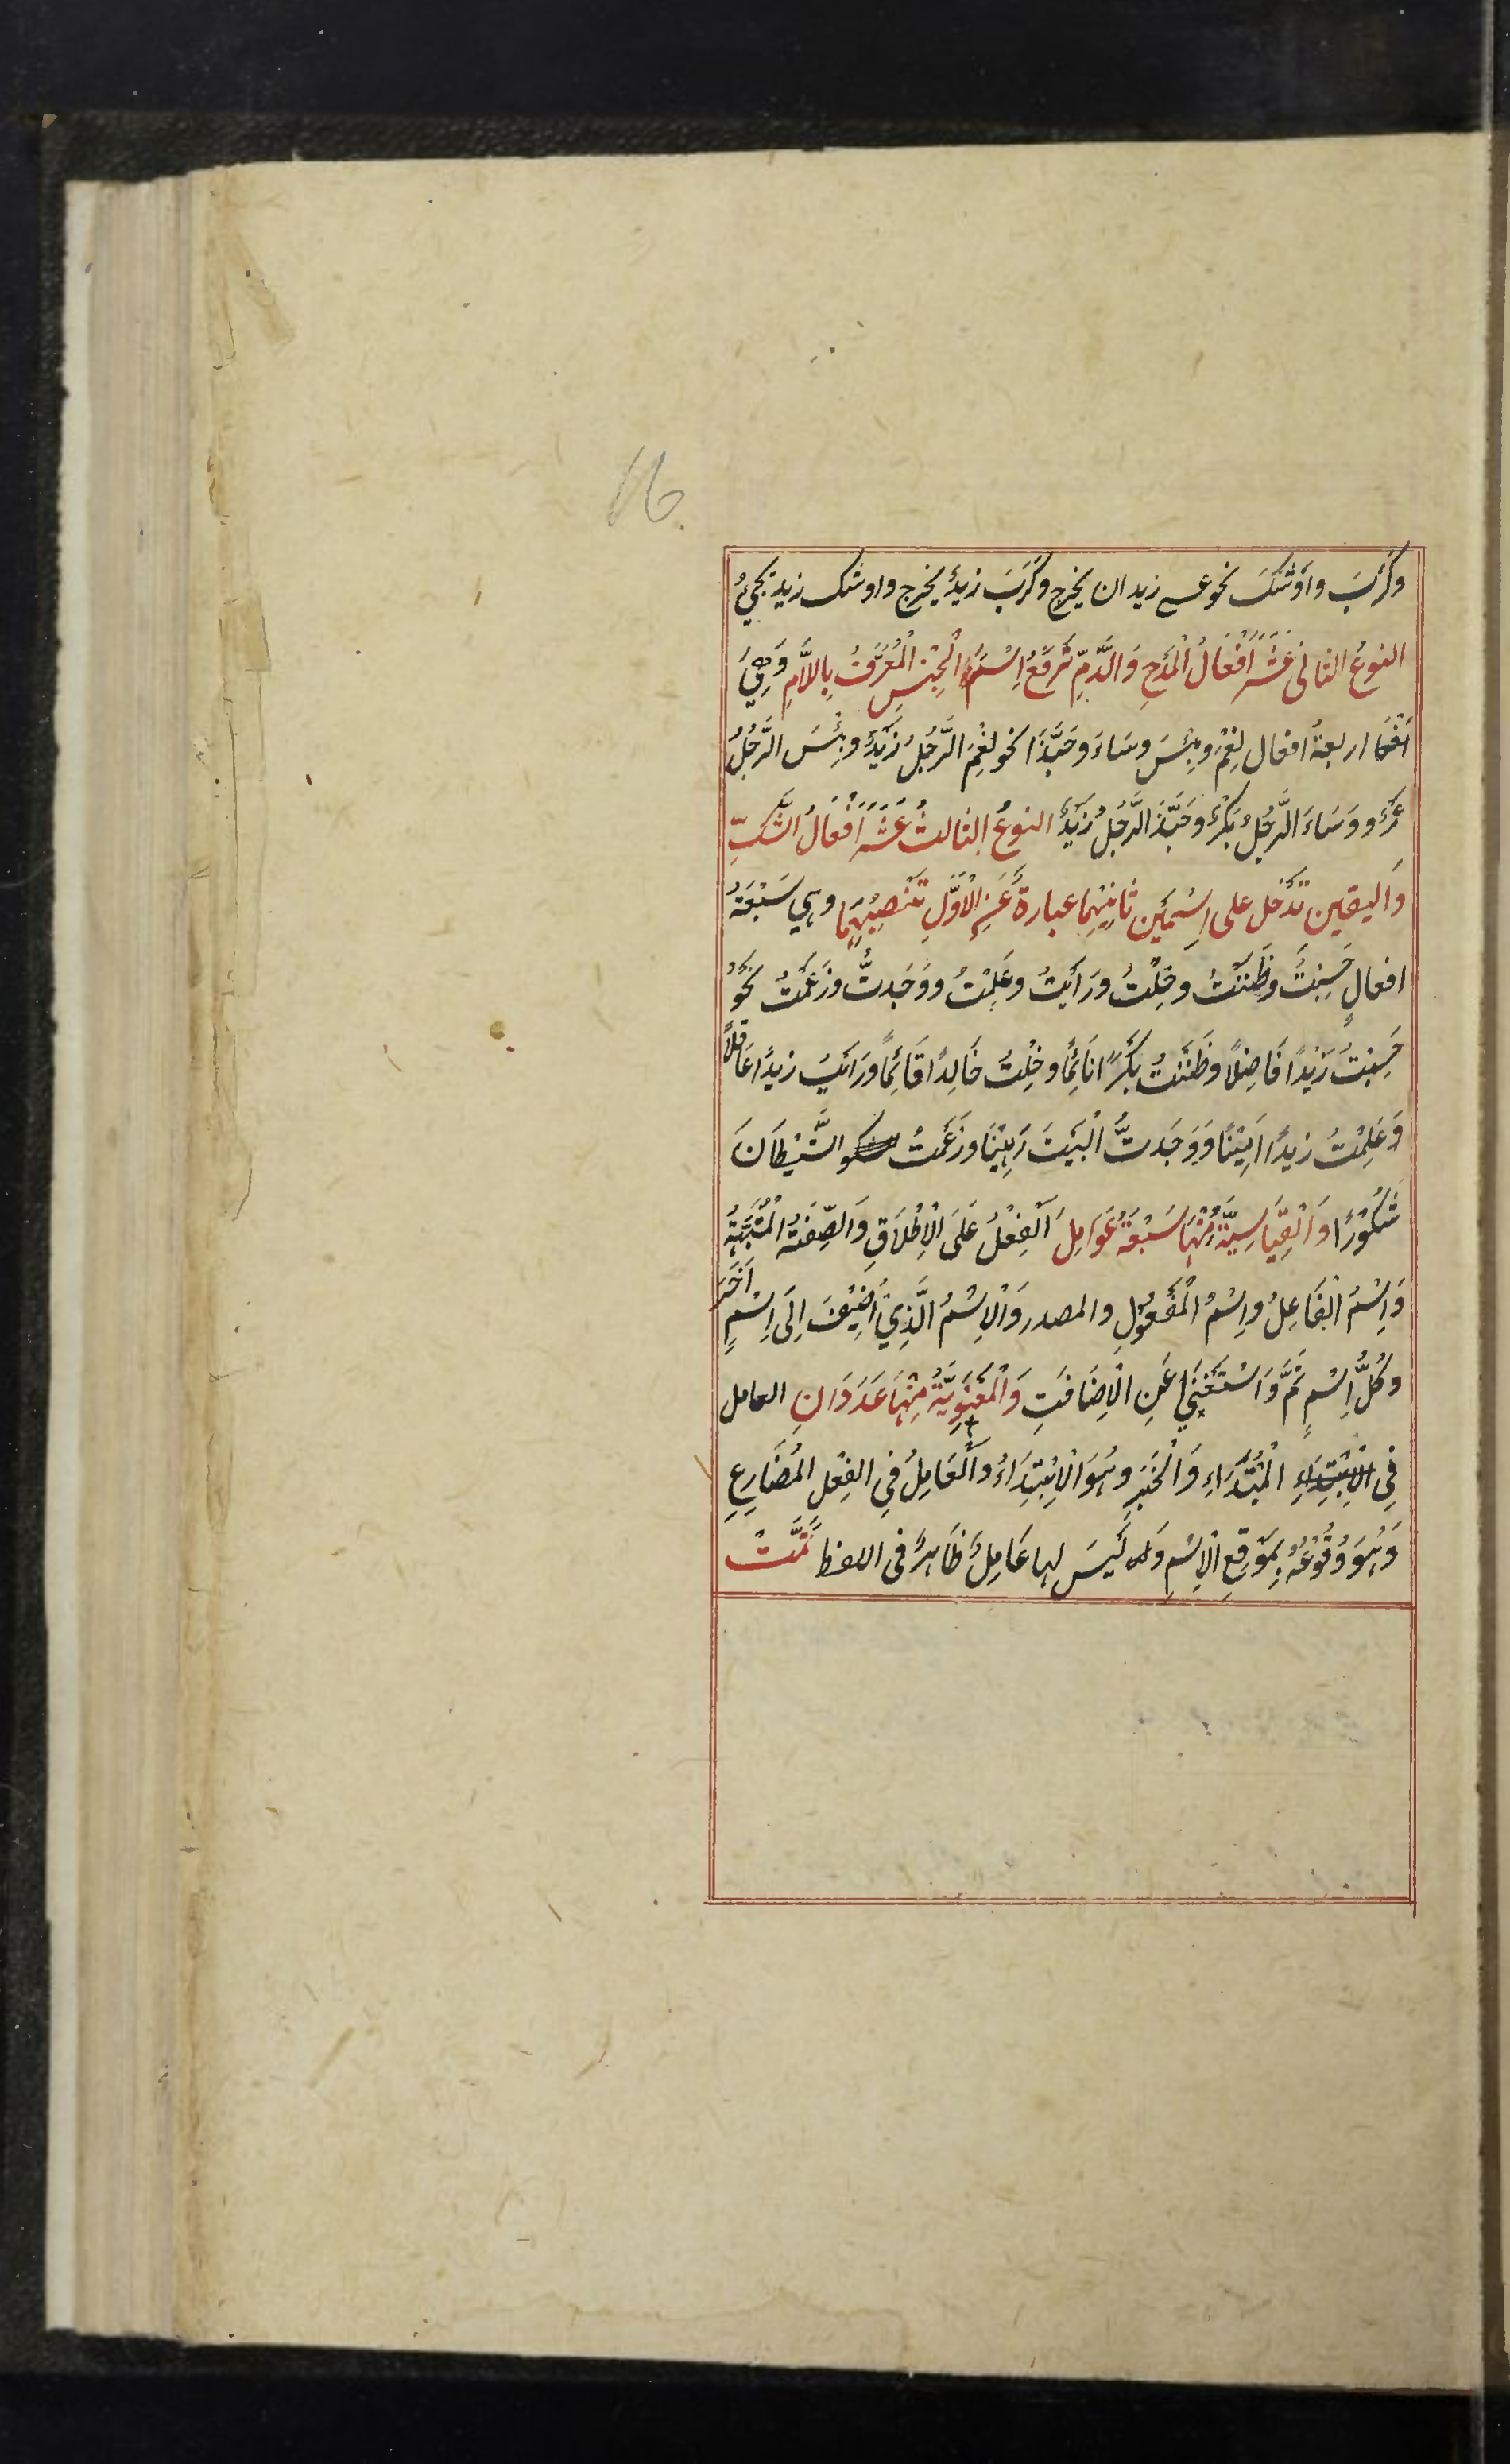 وكَرَبَ واَوْشَكَ نحو عسے زيد ان يخرج وكَرَبَ زيدٌ يخرج واوشك زيد يجئُ
النوعُ الثانى عَشَرَ اَفْعَالُ الْمَدْحِ وَالذَّمِّ تَرْفَعُ اِسْمَ الْجِنْسِ الْمُعَرَّفُ بِاللَّامِ وَهِيَ
اربعةُ افعال نِعْمَ وبِئْسَ وسَاءَ وحَبَّذَا نحو نِعْمَ الرَّجُلُ زَيْدٌ وبِئْسَ الرَّجُلُ
عَمْرٌو وَسَاءَ الرَّجُلُ بَكْرٌ وحَبَّذَ الرَّجُلُ زَيْدٌ النوعُ الثالثُ عَشَرَ اَفْعَالُ الشَّكِّ
وَاليقين تَدْخل على اِسْمَيْن ثانِيْهِما عبارةٌ عَنِ الْاَوَّلِ تَنْصِبُهُمَا وهي سَبْعَةُ
افعالٍ حَسِبْتُ وظَنَنْتُ وخِلْتُ ورَاَيْتُ وعَلِمْتُ ووَجَدتُّ وزَعَمْتُ نَحْوُ
حَسِبْتُ زَيْدًا فَاضِلًا وظَنَنْتُ بَكْرًا نَائِمًا وخِلْتُ خَالِدًا قَائِمًا ورَاَيْتُ زيدًا عَاقِلًا
وَعَلِمْتُ زيدًا اَمِيْنًا وَوَجَدتُّ الْبَيْتَ رَهِيْنًا وزَعَمْتُ الشَّيْطَانَ
شَكُوْرًا وَالْقِيَاسِيَّةُ مِنْهَا سَبْعَةُ عَوَامِلَ اَلْفِعْلُ عَلَى الْاِطْلَاقِ وَالصِّفَةُ الْمُشَبَّهَةُ
وَاِسْمُ الْفَاعِلُ واِسْمُ الْمَفْعُوْلِ والمصدر وَالْاِسْمُ الَّذِيْ اُضِيْفَ اِلَى اِسْمٍ اٰخَرَ
وكُلُّ اِسْمٍ تَمَّ وَاسْتَغْنَي عَنِ الْاِضَافَتِ وَالْمَعْنَوِيَّةُ مِنْهَا عَدَدَانِ العامل
فِى الْمُبْتَدَاءِ وَالْخَبَرِ وهُوَ الْاِبْتِدَاءُ واَلْعَامِلُ فِي الفِعْلِ المُضَارِعِ
وَهُوَ وُقُوْعُهُ بِمَوْقِعِ الْاِسْمِ وَ لَيْسَ لها عَامِلٌ ظَاهِرٌ فى اللفظ تَمَّتْ